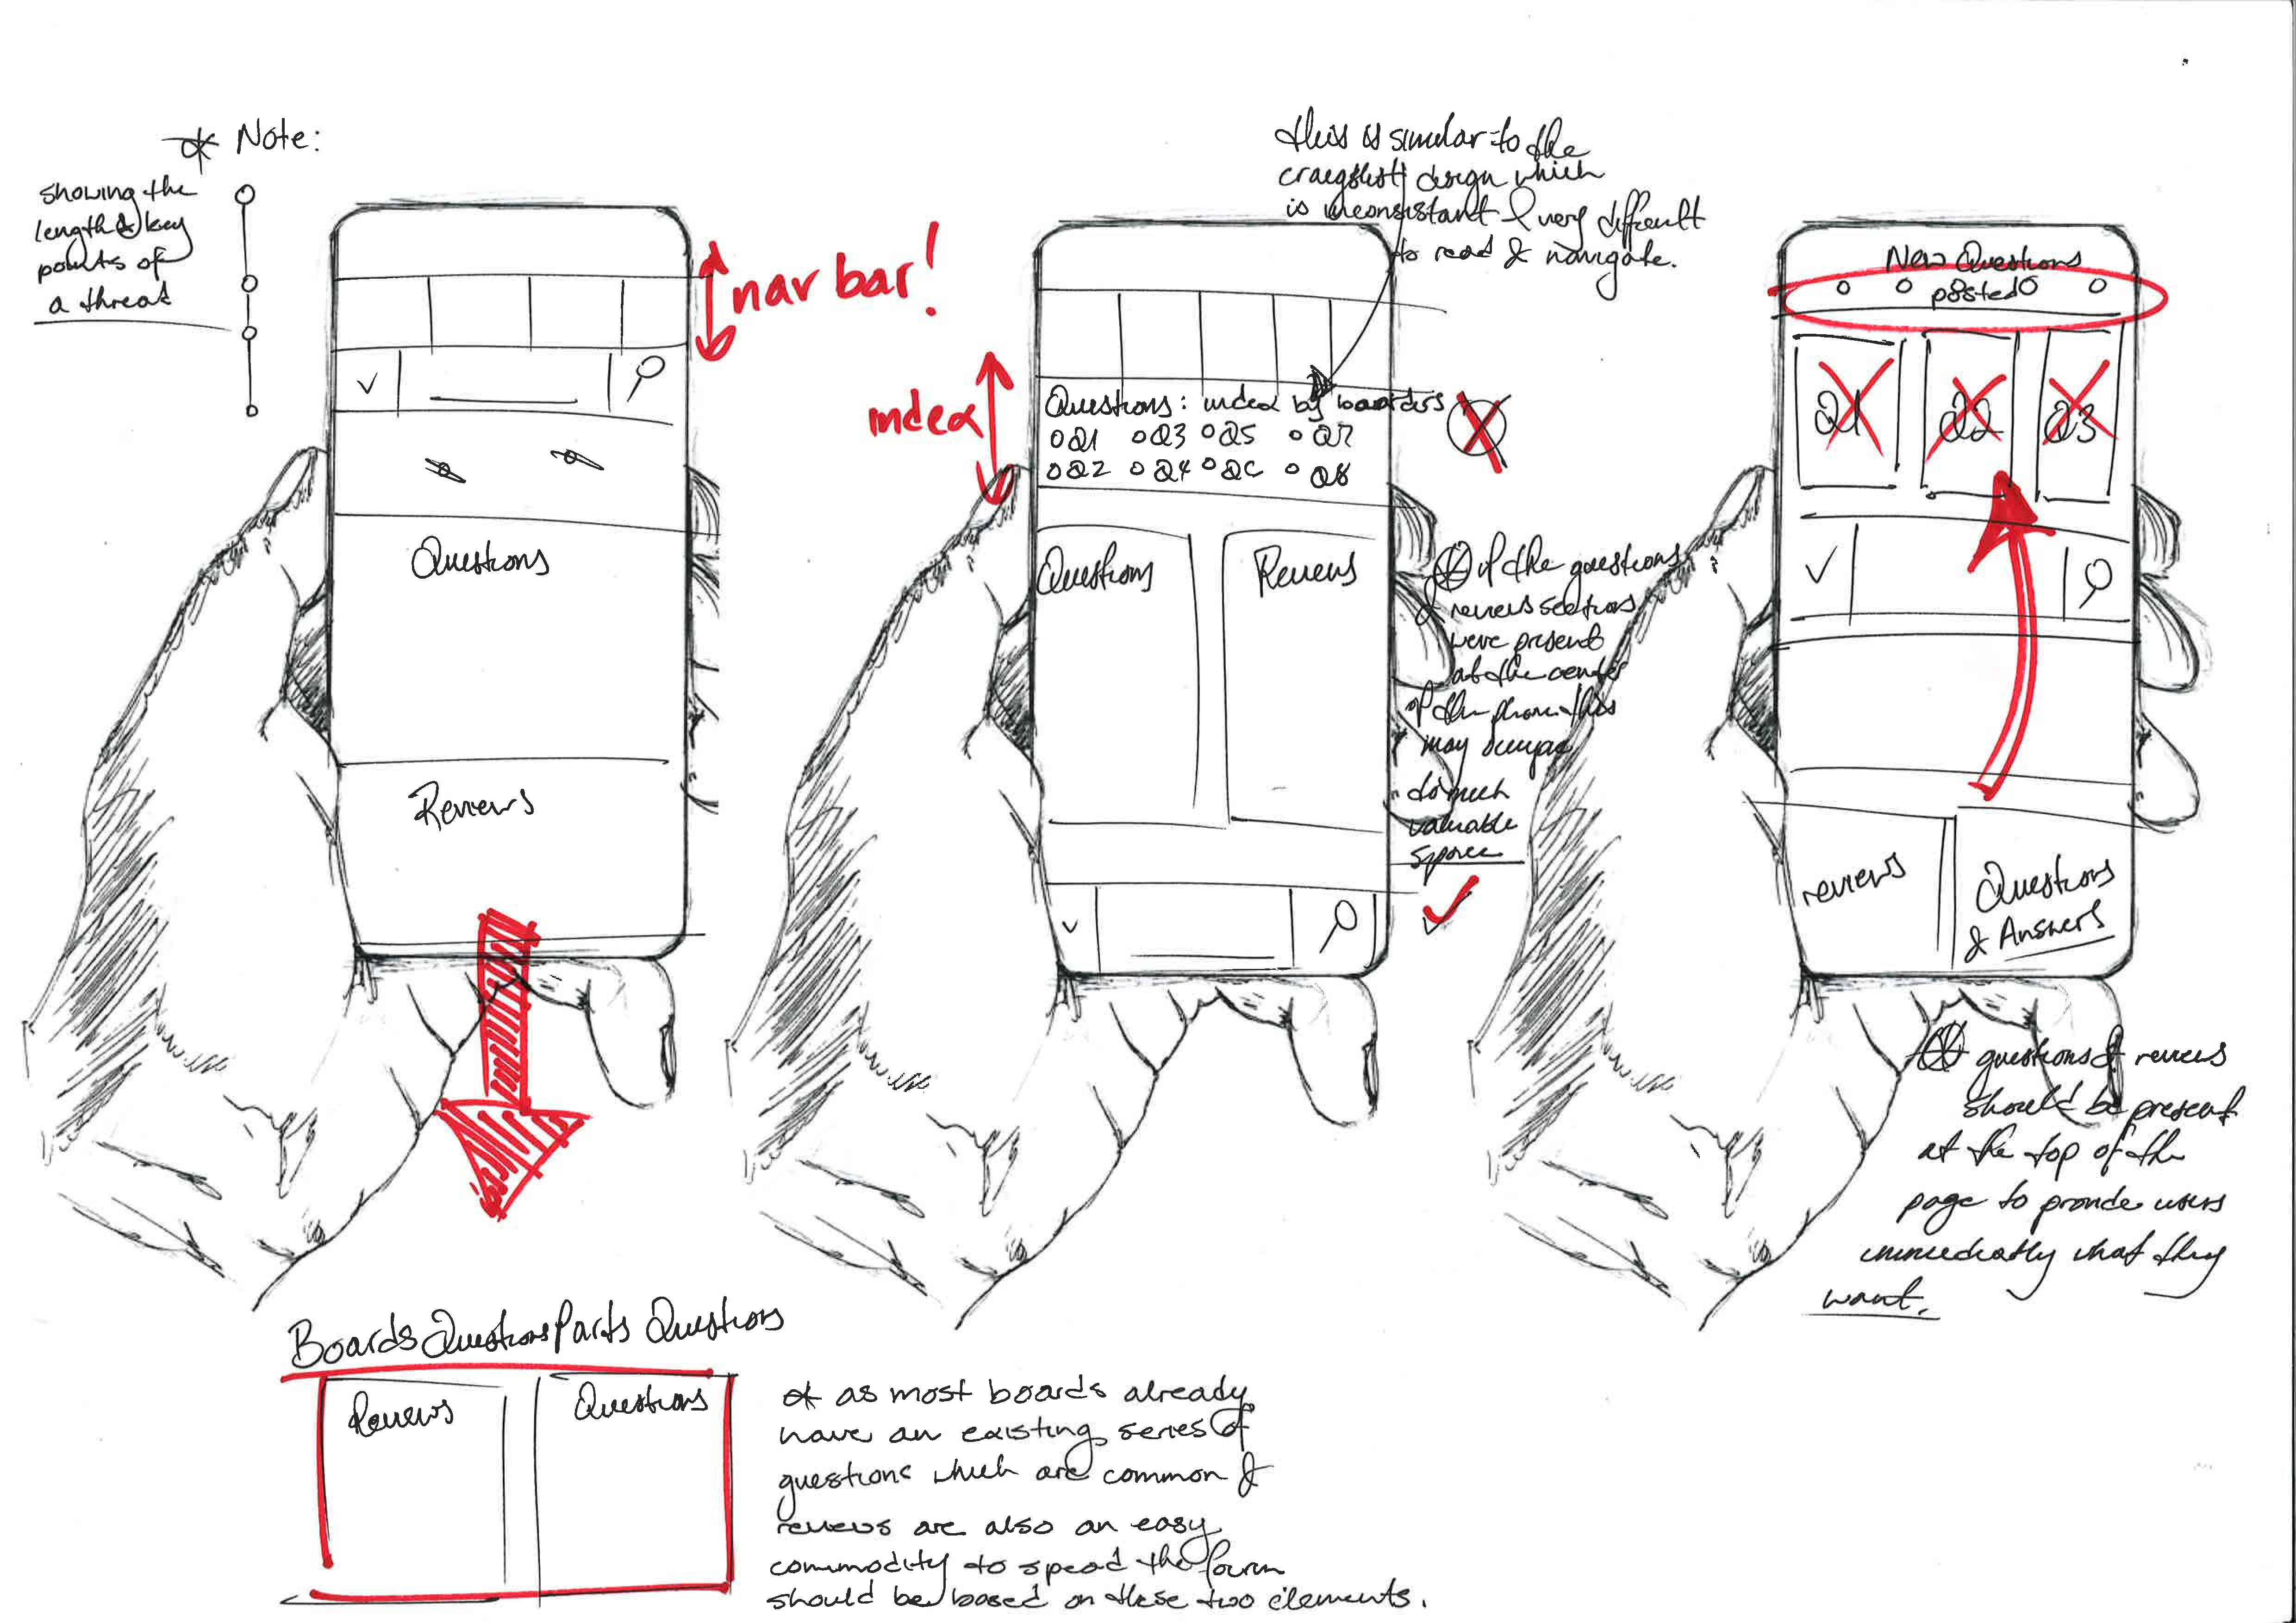 * Note:
showing the
length & key
points of
a thread
nav bar!
Questions
Reviews
this is similar to the
craigslist design which
is inconsistant & very difficult
to read & navigate.
index
Questions: index by boards
Q1 Q3 Q5 Q7
Q2 Q4 Q6 Q8
Questions
Reviews
* if the questions
& reviews sections
were present
at the center
of the phone this
may occupy
to much
valuable
space
New Questions
posted
Q1
Q2
Q3
reviews
Questions
& Answers
* questions & reviews
should be present
at the top of the
page to provide users
immediatly what they
want.
Boards Questions Parts Questions
Reviews
Questions
* as most boards already
have an existing series of
questions which are common &
reviews are also an easy
commodity to spead the forum
should be based on these two elements.